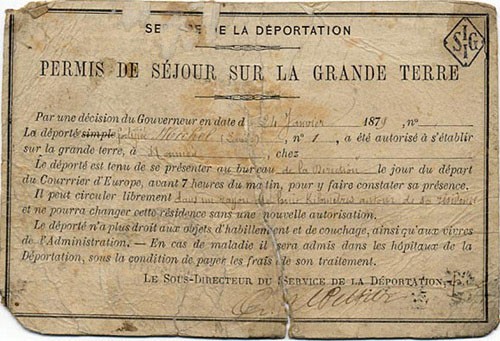 SERVICE DE LA DÉPORTATION
SIGI
PERMIS DE SÉJOUR SUR LA GRANDE TERRE
Par une décision du Gouverneur en date d 24 Janvier 1879, n°
La déporté simple Michel n° 1, a été autorisé à s'établir
sur la grande terre, à Nouméa, chez
Le déporté est tenu de se présenter au bureau de la Direction le jour du départ
du Courrrier d'Europe, avant 7 heures du matin, pour y faire constater sa présence.
Il peut circuler librement dans un rayon de kilomètres autour de sa résidence
et ne pourra changer cette résidence sans une nouvelle autorisation.
Le déporté n'a plus droit aux objets d'habillement et de couchage, ainsi qu'aux vivres
de l'Administration. — En cas de maladie il sera admis dans les hôpitaux de la
Déportation, sous la condition de payer les frais de son traitement.
Le Sous-Directeur du Service de la Déportation,